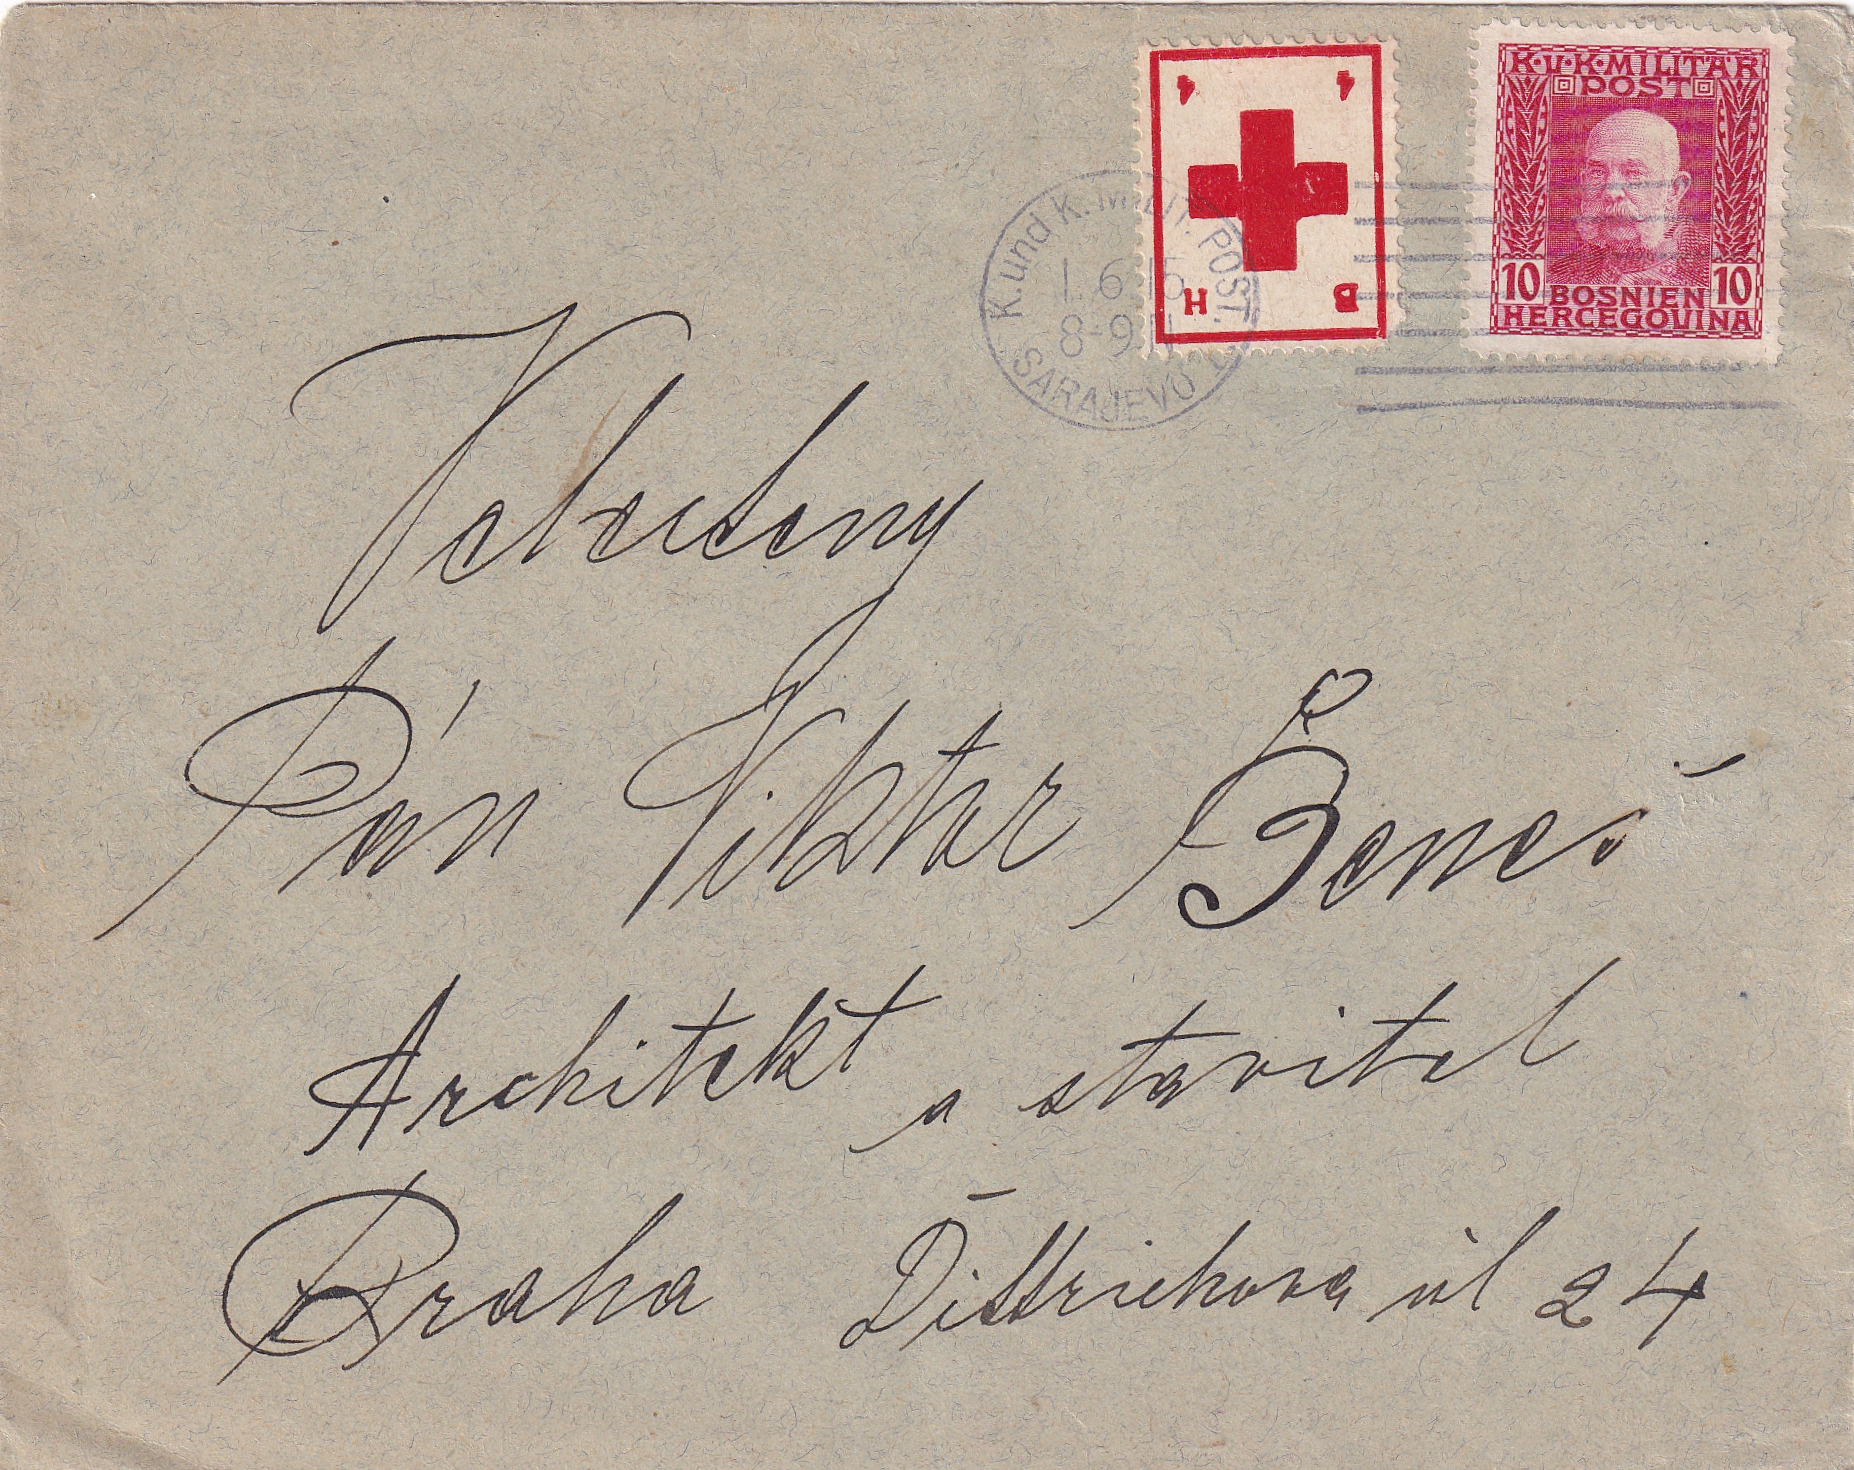 4 4
H B
K.U.K. MILITÄR
POST
10 BOSNIEN 10
HERCEGOVINA
K. und K. MILIT. POST.
1. 6 15
8-9
SARAJEVO
Velectený
Pán Viktor Beneš
Architekt a stavitel
Praha Dittrichova ul 24